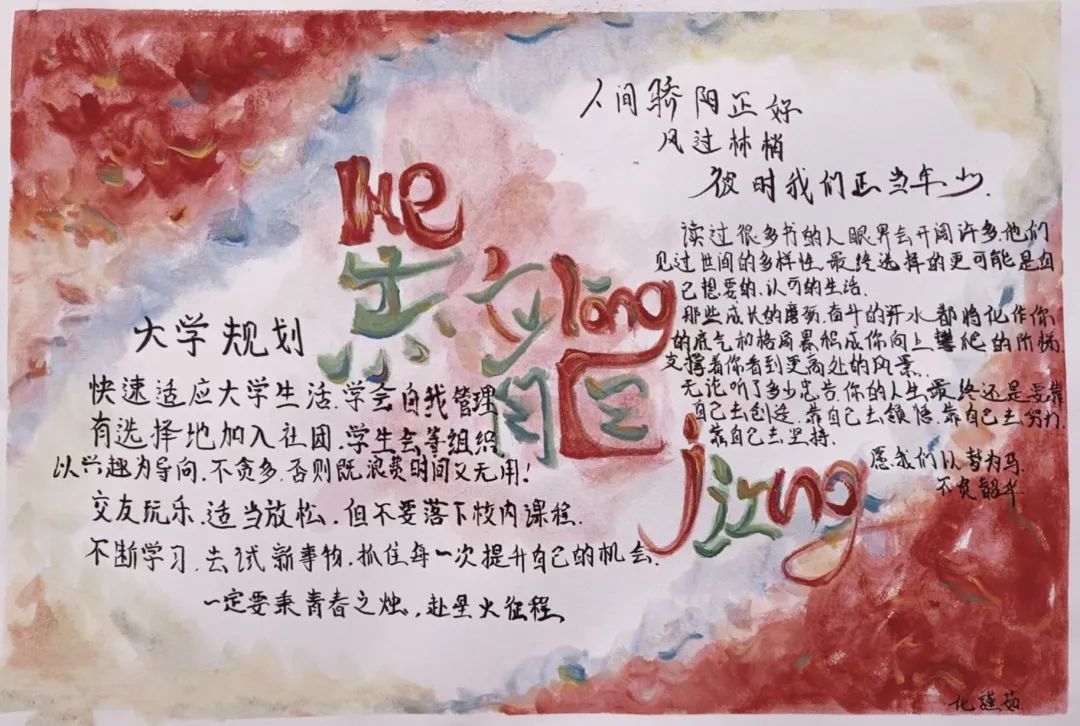 人间骄阳正好
风过林梢
彼时我们正当年少.
读过很多书的人眼界会开阔许多.他们
见过世间的多样性.最终选择的更可能是自
己想要的、认可的生活.
那些成长的磨砺.奋斗的汗水都将化作你
的底气和格局累积成你向上攀爬的阶梯.
支撑着你看到更高处的风景.
无论听了多少忠告.你的人生最终还是要靠
自己去创造.靠自己去领悟.靠自己去努力.
靠自己去坚持.
愿我们以梦为马.
不负韶华.
He
long
大学规划
快速适应大学生活.学会自我管理
有选择地加入社团.学生会等组织
以兴趣为导向.不贪多.否则既浪费时间又无用!
交友玩乐.适当放松,但不要落下校内课程.
不断学习.去试新事物.抓住每一次提升自己的机会.
一定要秉青春之烛,赴星火征程